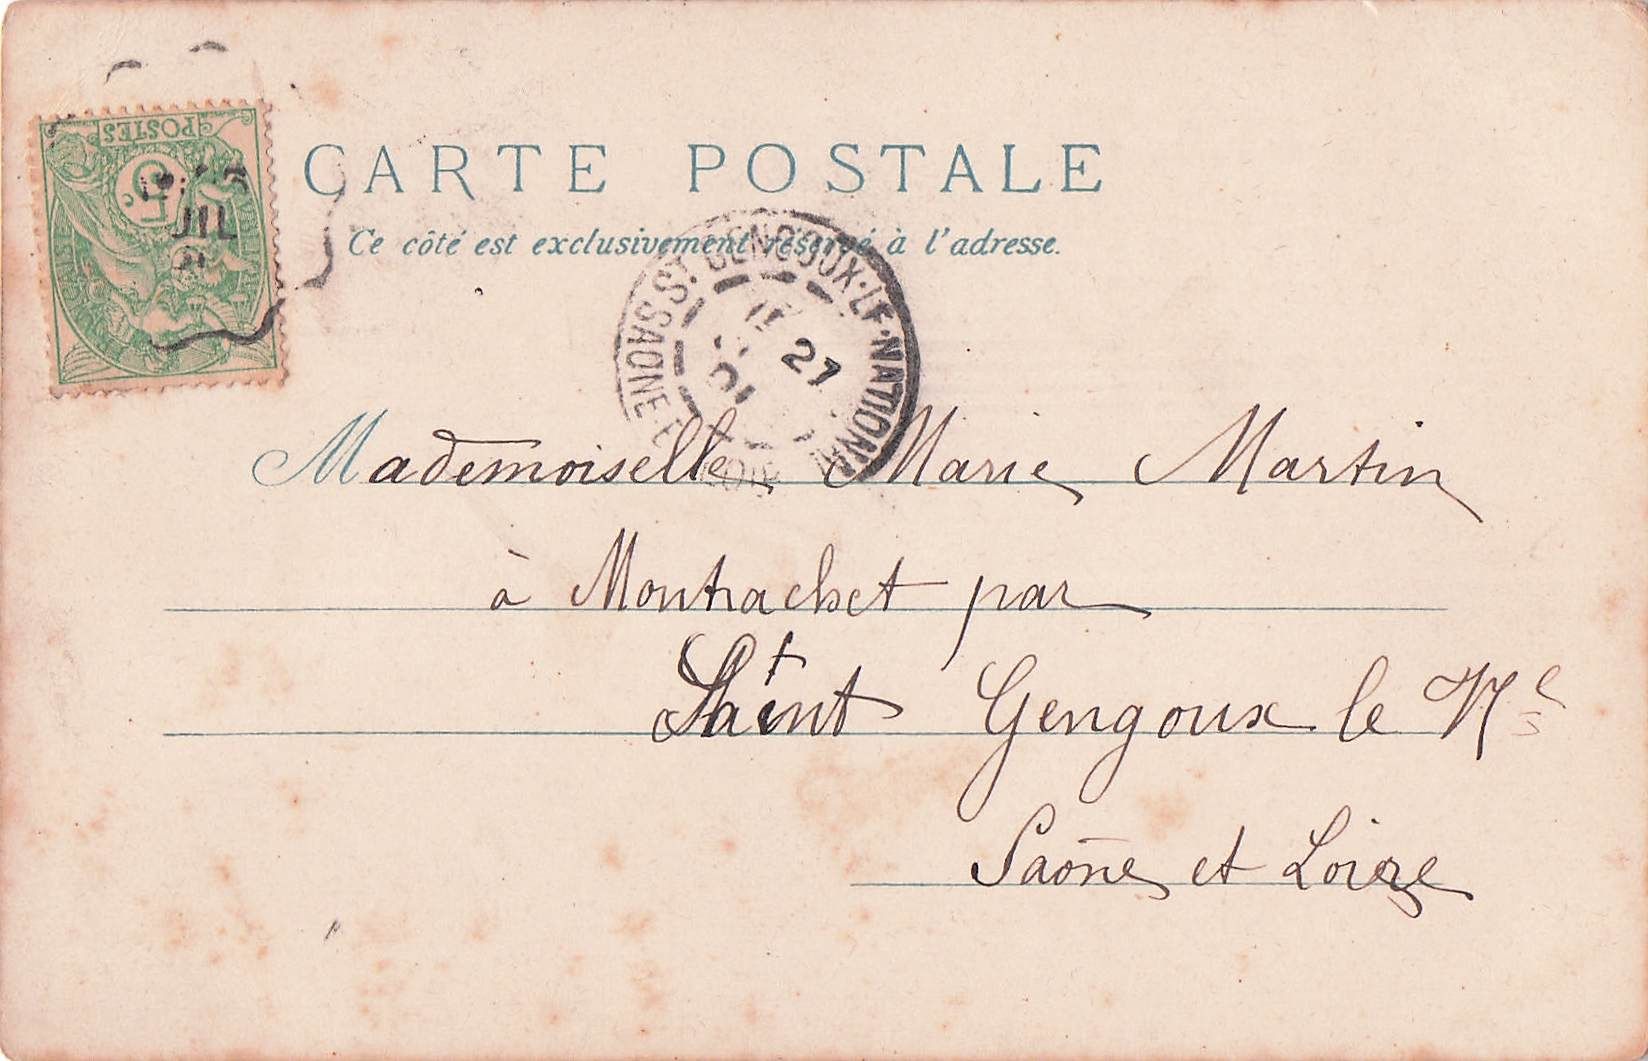 POSTES
5c
JIL
CARTE POSTALE
Ce côté est exclusivement réservé à l'adresse.
ST GENGOUX-LE-NATIONAL
SAONE-E
27
01
Mademoiselle Marie Martin
à Montrachet par
Saint Gengoux le Nel
Saône et Loire